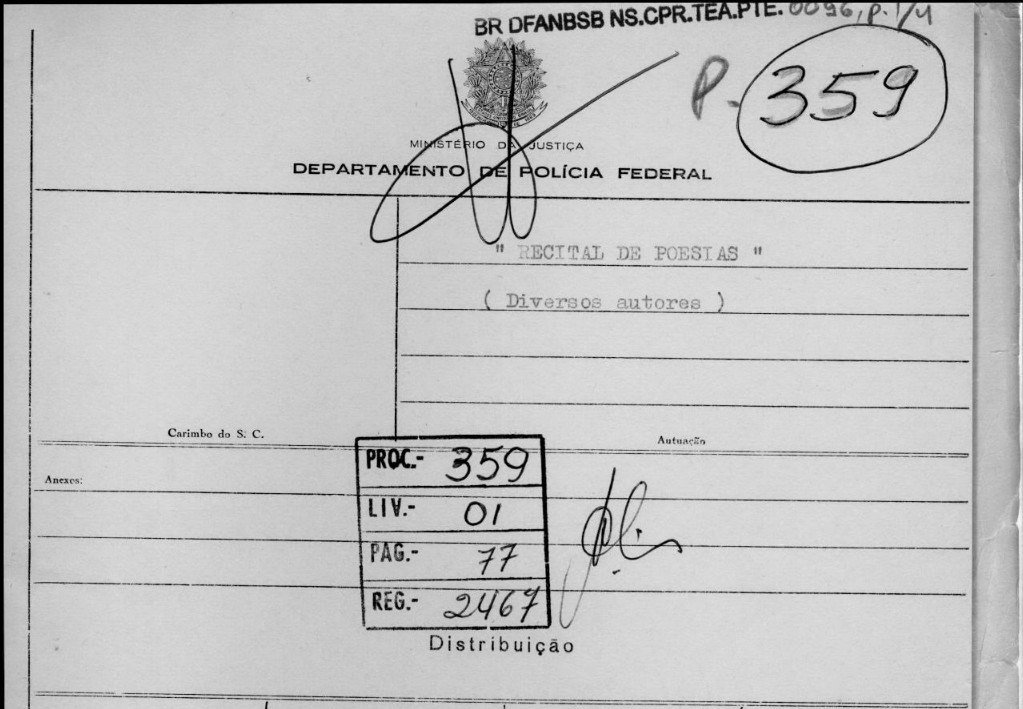 BR DFANBSB NS.CPR.TEA.PTE. 0096, p. 1/4
P. 359
MINISTÉRIO DA JUSTIÇA
DEPARTAMENTO DE POLÍCIA FEDERAL
" RECITAL DE POESIAS "
( Diversos autores )
Carimbo do S. C.
Autuação
Anexos:
PROC.- 359
LIV.- 01
PAG.- 77
REG.- 2467
Distribuição